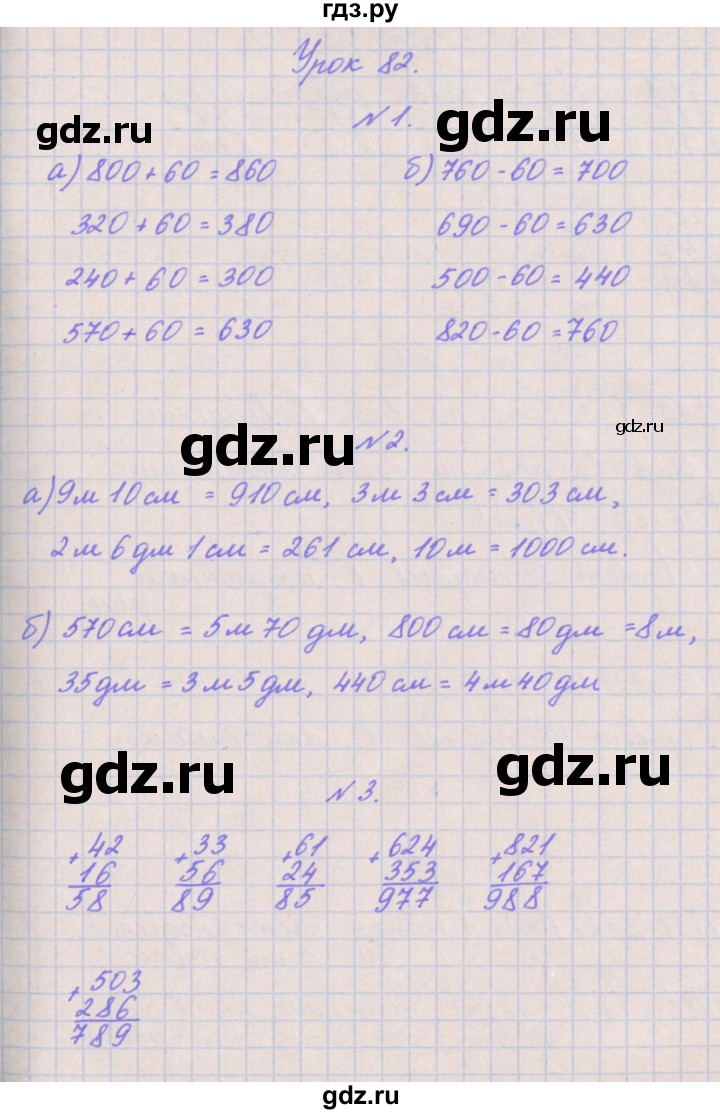 гдз.ру
Урок 82.
gdz.ru gdz.ru
№1.
а) 800 + 60 = 860 б) 760 - 60 = 700
320 + 60 = 380 690 - 60 = 630
240 + 60 = 300 500 - 60 = 440
570 + 60 = 630 820 - 60 = 760
gdz.ru
gdz.ru
№2.
а) 9м 10см = 910см, 3м 3см = 303см,
2м 6дм 1см = 261см, 10м = 1000см.
б) 570см = 5м 70дм, 800см = 80дм = 8м,
35дм = 3м 5дм, 440см = 4м 40дм
gdz.ru gdz.ru
№3.
+42 +33 +61 +624 +821
16 56 24 353 167
58 89 85 977 988
+503
286
789
gdz.ru